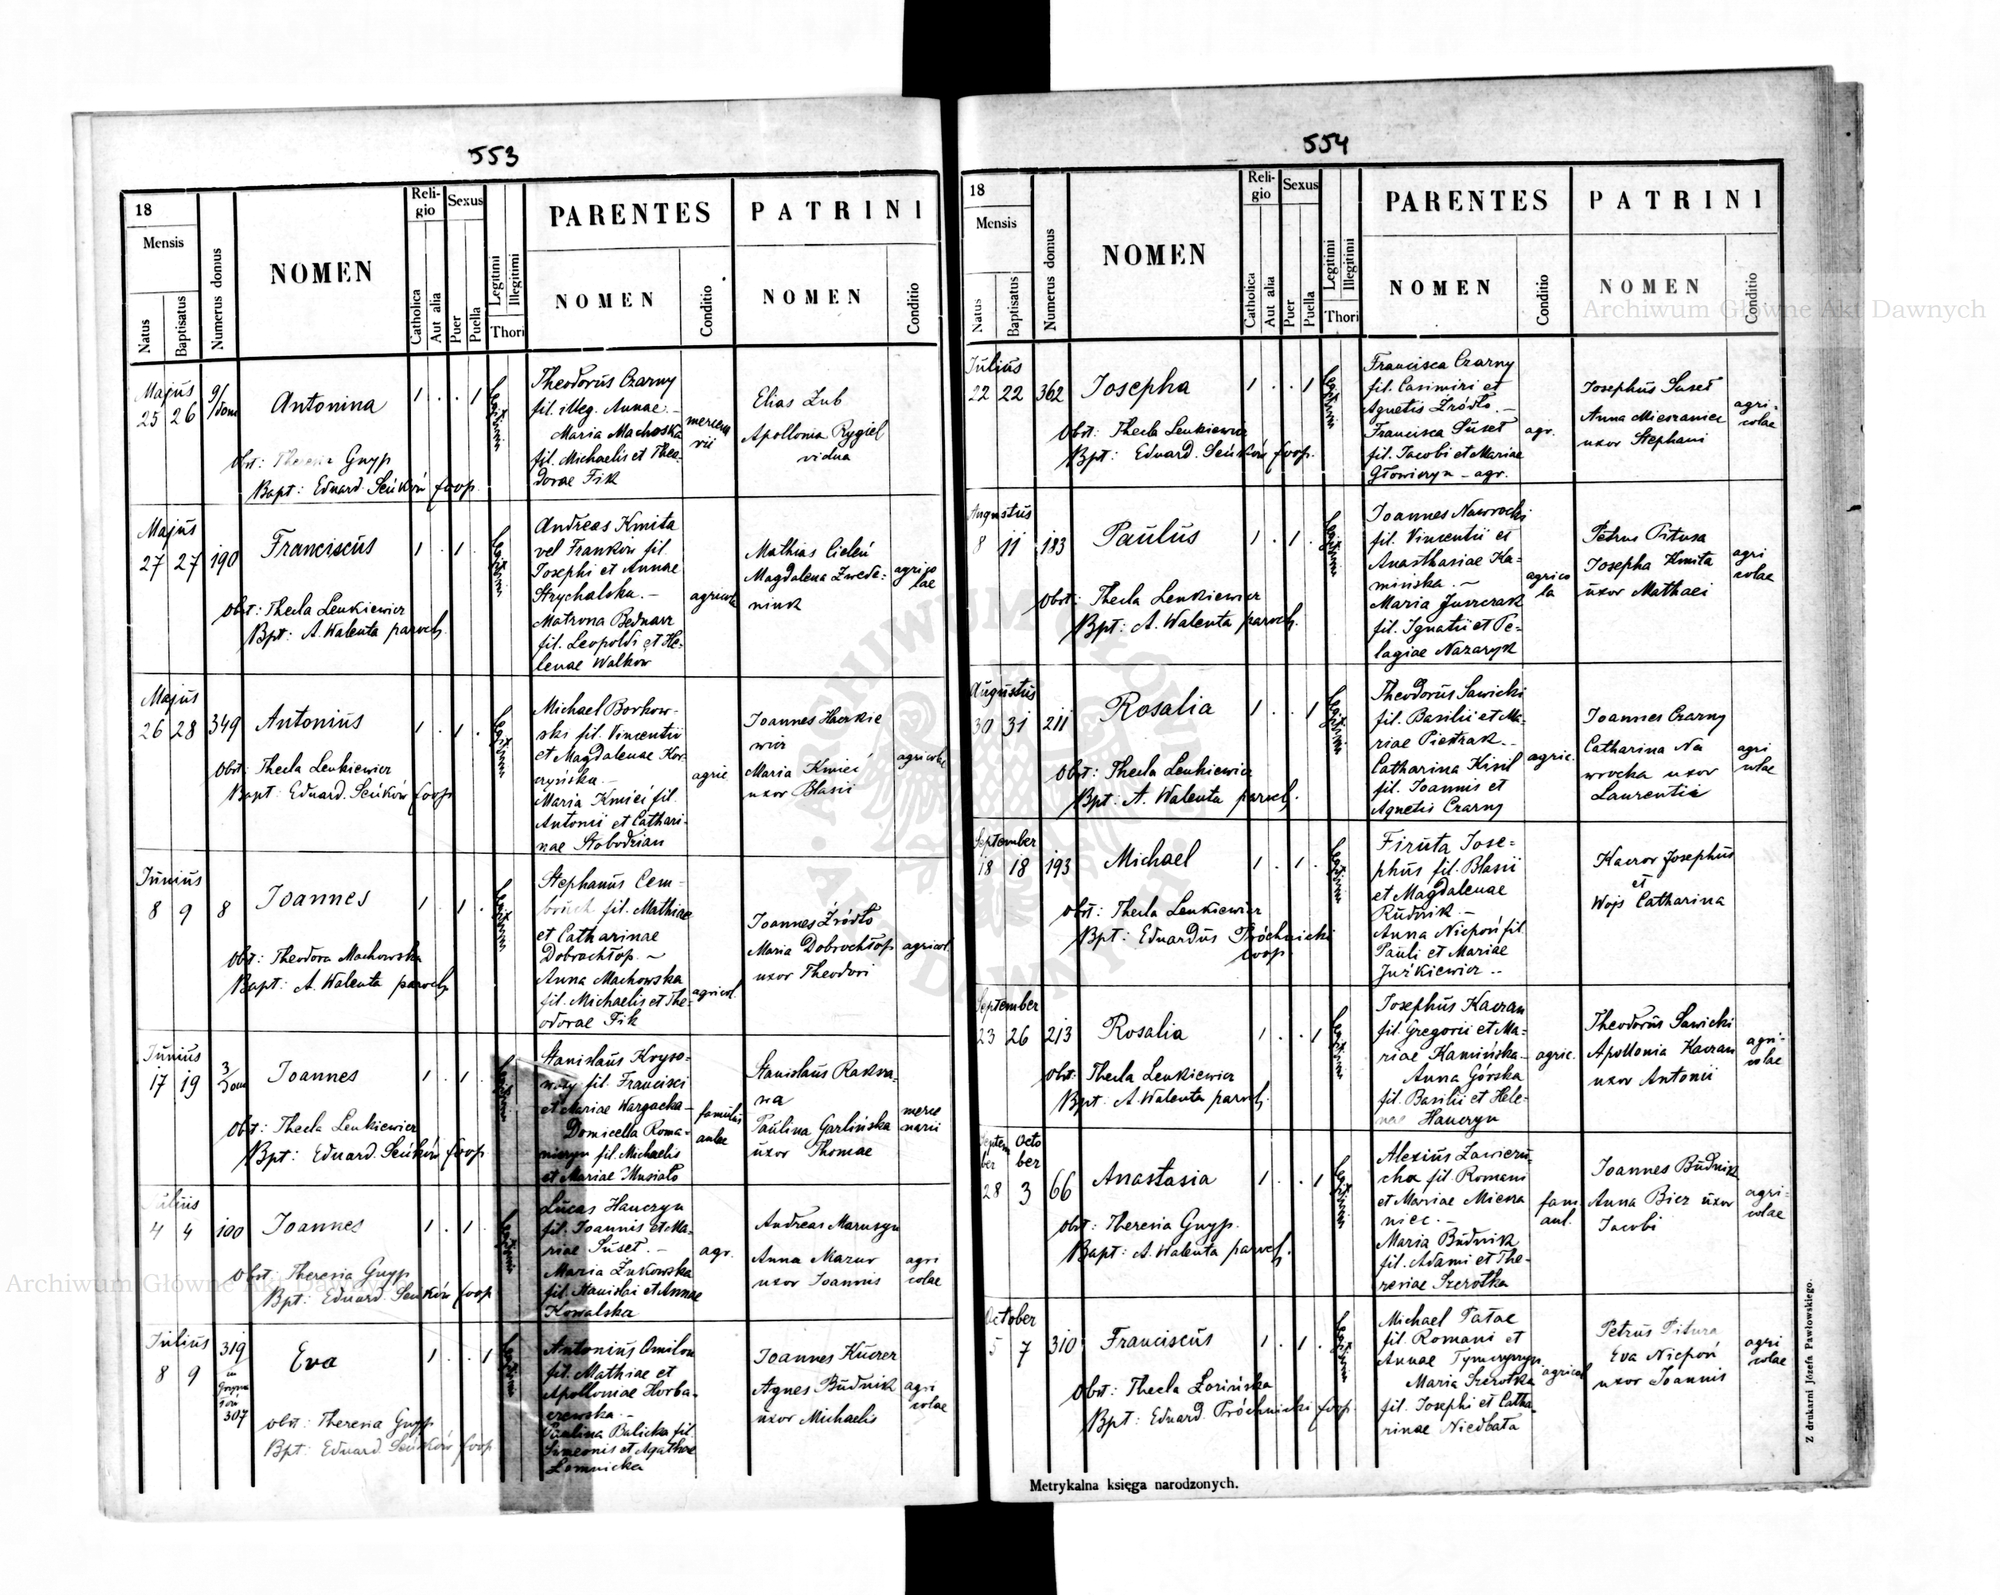 553
18
Mensis
Natus
Baptisatus
Numerus domus
NOMEN
Reli-
gio
Catholica
Aut alia
Sexus
Puer
Puella
Legitimi
Illegitimi
Thori
PARENTES
NOMEN
Conditio
PATRINI
NOMEN
Conditio
Majus
25 26
Antonina
1 . . 1
Obst: Theresia Gnyp
Bapt: Eduard. Seńków Coop.
Theodorus Czarny
fil. illeg. Annae. —
Maria Machoska
fil. Michaelis et Theo-
dorae Fik
Elias Zub
Apollonia Rygiel
vidua
Majus
27 27 190
Franciscus
1 . 1 .
Obst: Thecla Lenkiewicz
Bpt: A. Walenta paroch.
Andreas Kmita
vel Franków fil.
Josephi et Annae
Strychalska. —
Matrona Bednarz
fil. Leopoldi et He-
lenae Walkow
agricola
Mathias Cieleń
Magdalena Zwede-
niuk
agrico
lae
Majus
26 28 349
Antonius
1 . 1 .
Obst: Thecla Lenkiewicz
Bapt: Eduard. Seńków Coop
Michael Borkow-
ski fil. Vincentii
et Magdalenae Kor-
czyńska. —
Maria Kmieć fil.
Antonii et Cathari-
nae Słobodzian
agric
Joannes Hackie
wicz
Maria Kmieć
uxor Blasii
agricolae
Junius
8 9 8
Joannes
1 . 1 .
Obst: Theodora Machowska
Bapt: A. Walenta paroch
Stephanus Cem-
bruch fil. Mathiae
et Catharinae
Dobrochłop. ~
Anna Machowska
fil. Michaelis et The-
odorae Fik
agricol.
Joannes Źródło
Maria Dobrochłop
uxor Theodori
agricol.
Junius
17 19 3/Dom
Joannes
1 . 1 .
Obst: Thecla Lenkiewicz
Bpt: Eduard. Seńków Coop
Stanislaus Kryso-
waty fil. Francisci
et Mariae Wargacka-
Domicella Roma-
niczyn fil. Michaelis
et Mariae Musiało
famulus
aulae
Stanislaus Raksa-
wa
Paulina Garlińska
uxor Thomae
merce
narii
Julius
4 4 100
Joannes
1 . 1 .
Obst: Theresia Gnyp
Bpt: Eduard. Seńków Coop
Lucas Hanczyn
fil. Joannis et Ma-
riae Suset. —
Maria Żukowska
fil. Stanislai et Annae
Kowalska
agr.
Andreas Marusyn
Anna Mazur
uxor Joannis
agri
colae
Julius
8 9 319
307
Eva
1 . . 1
Obst: Theresia Gnyp
Bpt: Eduard Seńków Coop
Antonius Omilon
fil. Mathiae et
Apolloniae Horba-
czewska —
Paulina Balicka fil.
Simeonis et Agathae
Lomnicka
Joannes Kuczer
Agnes Budnik
uxor Michaelis
agri
colae
554
18
Mensis
Natus
Baptisatus
Numerus domus
NOMEN
Reli-
gio
Catholica
Aut alia
Sexus
Puer
Puella
Legitimi
Illegitimi
Thori
PARENTES
NOMEN
Conditio
PATRINI
NOMEN
Conditio
Julius
22 22 362
Josepha
1 . . 1
Obst: Thecla Lenkiewicz
Bpt: Eduard. Seńków Coop.
Francisca Czarny
fil. Casimiri et
Agnetis Źródło. —
Francisca Suset
fil. Jacobi et Mariae
Głowiczyn — agr.
agr.
Josephus Suset
Anna Mieszaniec
uxor Stephani
agri-
colae
Augustus
8 11 183
Paulus
1 . 1 .
Obst: Thecla Lenkiewicz
Bpt: A. Walenta paroch.
Joannes Nawrocki
fil. Vincentii et
Anasthasiae Ka-
mińska. —
Maria Jurczak
fil. Ignatii et Pe-
lagiae Nazaryk
agrico
la
Petrus Pitusa
Josepha Kmita
uxor Mathaei
agri
colae
Augustus
30 31 211
Rosalia
1 . . 1
Obst: Thecla Lenkiewicz
Bpt: A. Walenta paroch.
Theodorus Sawicki
fil. Basilii et Ma-
riae Pietrzak. —
Catharina Kisil
fil. Joannis et
Agnetis Czarny
agric.
Joannes Czarny
Catharina Na
wrocka uxor
Laurentii
agri
colae
September
18 18 193
Michael
1 . 1 .
Obst: Thecla Lenkiewicz
Bpt: Eduardus Próchnicki
Coop.
Firuta Jose-
phus fil. Blasii
et Magdalenae
Rudnik —
Anna Niepoń fil.
Pauli et Mariae
Juśkiewicz —
Kaczor Josephus
et
Wojs Catharina
September
23 26 213
Rosalia
1 . . 1
Obst: Thecla Lenkiewicz
Bpt: A. Walenta paroch.
Josephus Kaczan
fil. Gregorii et Ma-
riae Kamińska —
Anna Górska
fil. Basilii et Hele-
nae Hanczyn
agric.
Theodorus Sawicki
Apollonia Kaczan
uxor Antonii
agri-
colae
Septem
ber
Octo
ber
28 3 66
Anastasia
1 . . 1
Obst: Theresia Gnyp.
Bapt: A. Walenta paroch.
Alexius Zawieru-
cha fil. Romani
et Mariae Miesza
niec. —
Maria Budnik
fil. Adami et The-
resiae Szerotka
fam
aul.
Joannes Budnik
Anna Biez uxor
Jacobi
agri-
colae
October
5 7 310
Franciscus
1 . 1 .
Obst: Thecla Łosińska
Bpt: Eduard. Próchnicki Coop.
Michael Pałac
fil. Romani et
Maria Szerotka
fil. Josephi et Catha-
rinae Niedbała
agricol
Petrus Pitura
Eva Niepoń
uxor Joannis
agri
colae
Metrykalna księga narodzonych.
Z drukarni Józefa Pawłowskiego.
Archiwum Główne Akt Dawnych
Archiwum Główne Akt Dawnych